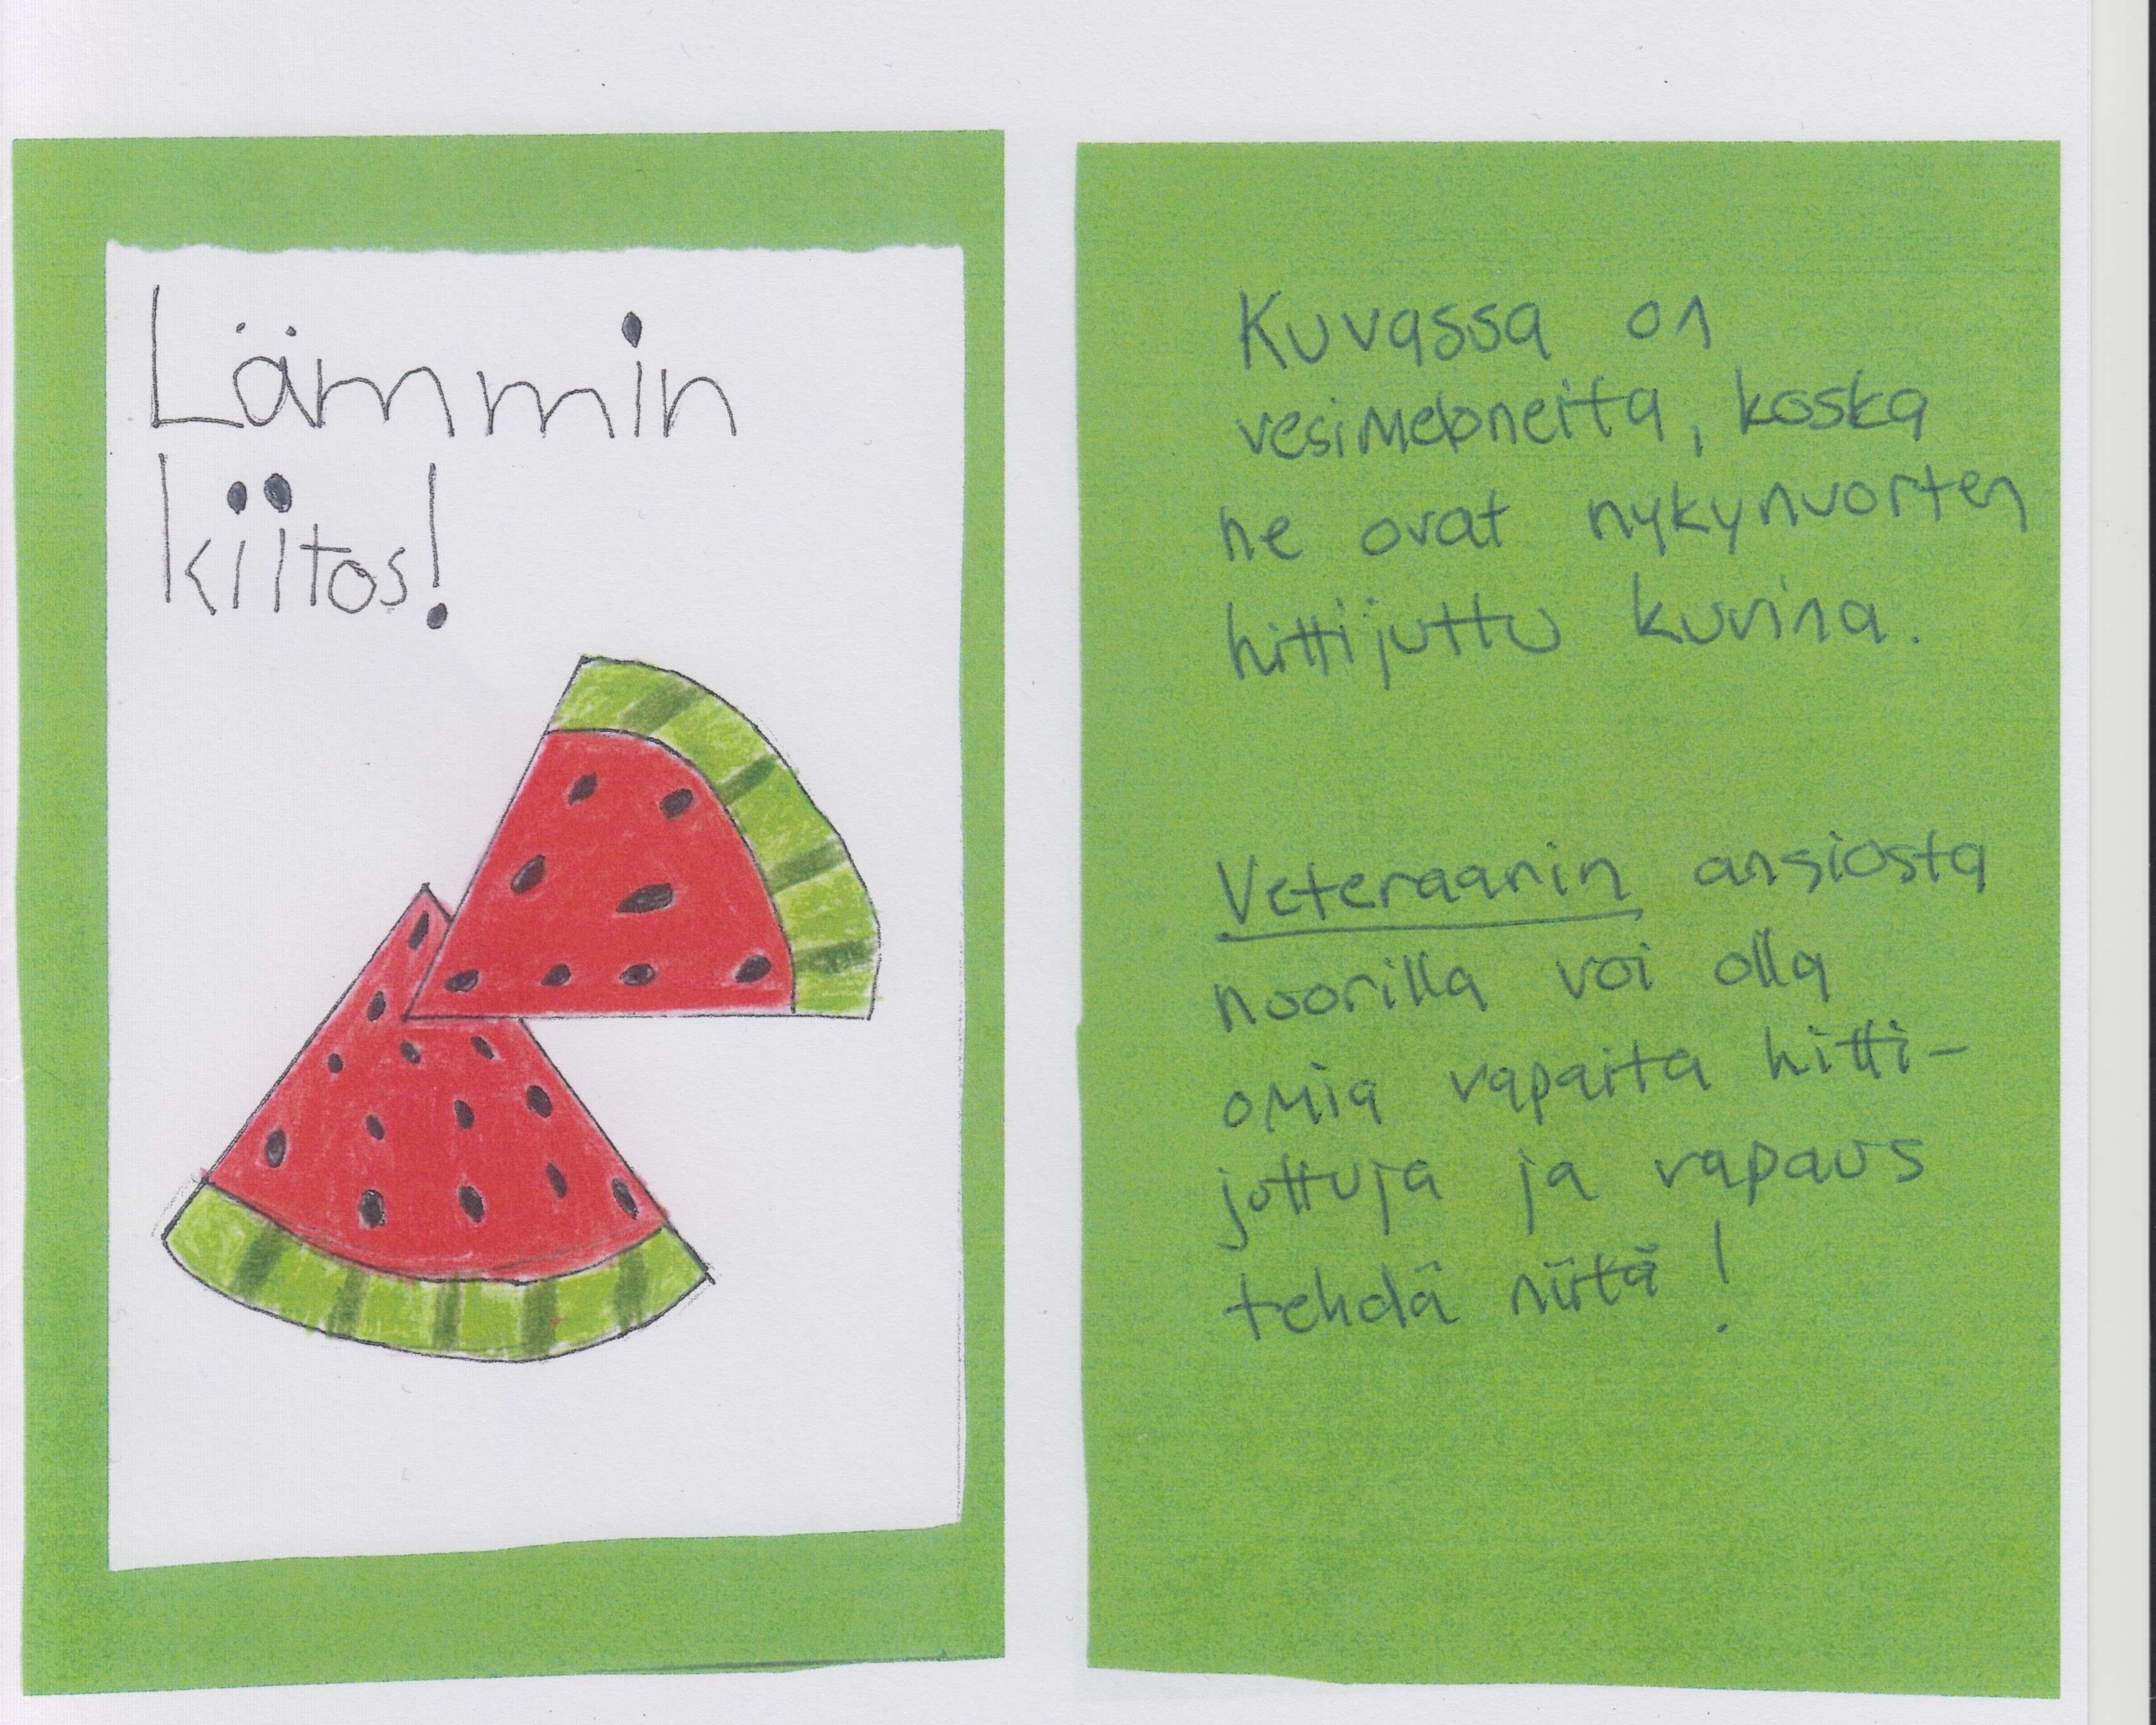 Lämmin
kiitos!
Kuvassa on
vesimeloneita, koska
ne ovat nykynuorten
hittijuttu kuvina.
Veteraanin ansiosta
nuorilla voi olla
omia vapaita hitti-
juttuja ja vapaus
tehdä niitä!